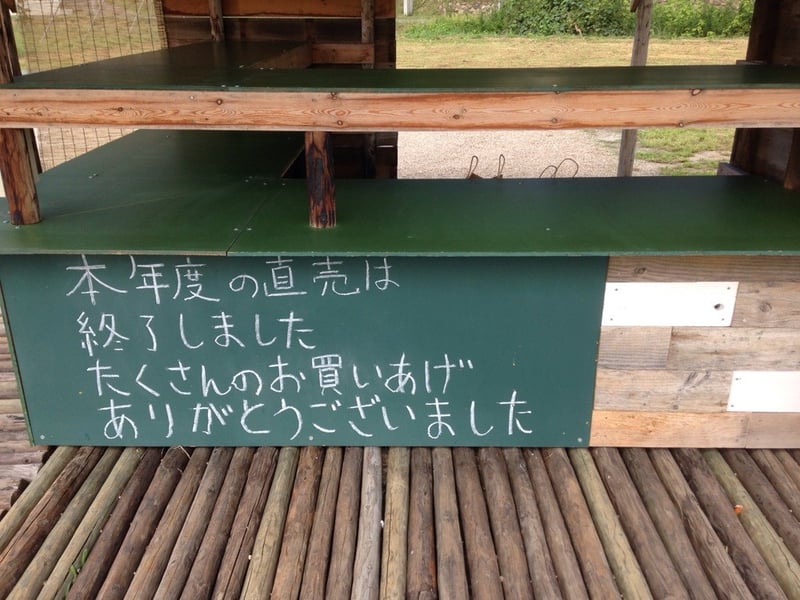 本年度の直売は
終了しました
たくさんのお買いあげ
ありがとうございました